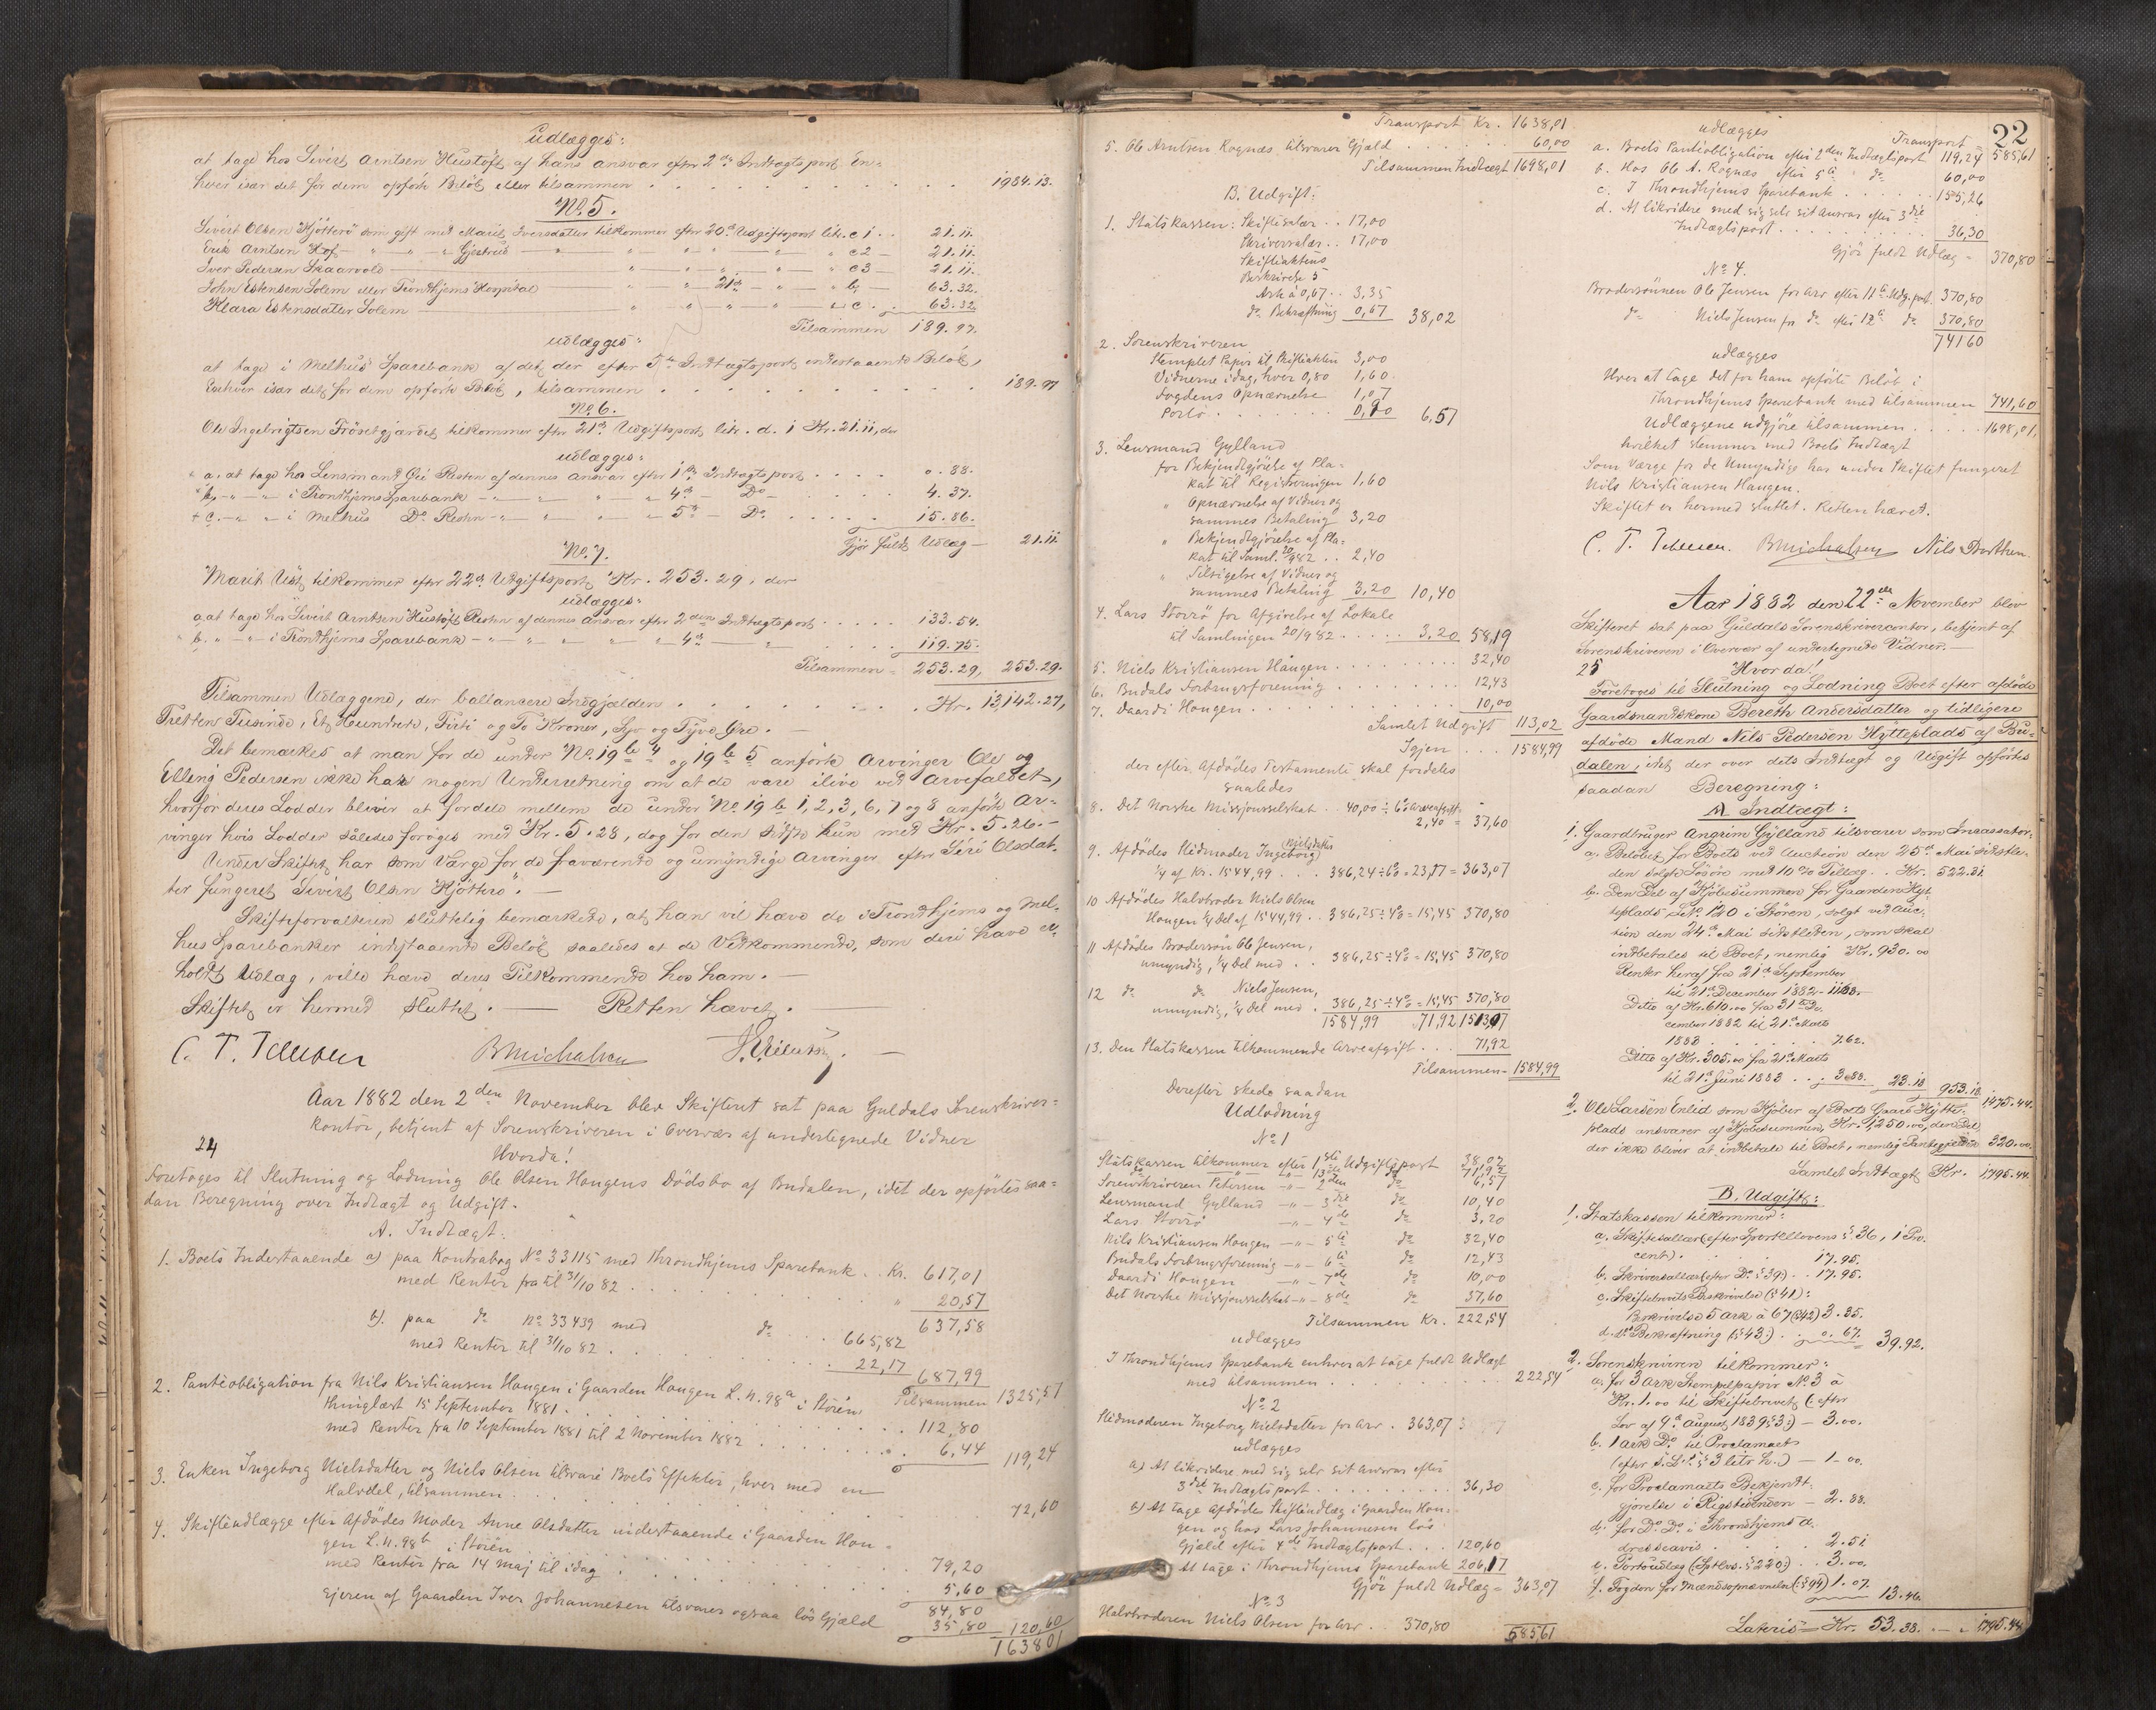 udlægges:
at tage hos Sivert Arntsen Hustoft af hans ansvar efter 2den Indtægtspost En-
hver især det for dem opførte Beløb eller tilsammen . . . 1984.13.
No. 5.
Sivert Olsen Kjötterö som gift med Marit Iversdatter tilkommer efter 20de Udgiftspost litr. c 1 . . 21.11.
Erik Arntsen Hof - " - " Gjestrud - " - " - " - " c 2 - 21.11.
Iver Pedersen Skaarvold - " - " - " - " c 3 - 21.11.
John Estensen Solem eller Trondhjems Hospital - " - 21de - " - " b - 63.32.
Klara Estensdatter Solem - " - " - " - " c . 63.32
Tilsammen 189.97.
udlægges:
at tage i Melhus Sparebank af det der efter 5te Indtægtspost indestaaende Beløb,
Enhver især det for dem opførte Beløb, tilsammen . . . 189.97
No. 6.
Ole Ingebrigtsen Frösetgjærdet tilkommer efter 21de Udgiftspost litr. d. i Kr. 21.11, der
udlægges:
a, at tage hos Lensmand Öie Resten af dennes ansvar efter 1ste Indtægtspost . . . 0.88.
b, - " - " - i Trondhjems Sparebank - " - " - " 4de - Do - . . . 4.37.
c. - " - " i Melhus Do Resten - " - " - " 5te - Do . . . 15.86.
Gjør fuldt Udlæg - 21.11
No. 7.
Marit Üst tilkommer efter 22de Udgiftspost Kr. 253.29, der
udlægges:
a, at tage hos Sivert Arntsen Hustoft Resten af dennes ansvar efter 2den Indtægtspost . . . 133.54.
b. " - " - i Trondhjems Sparebank - " - " - " - 4de - " . . . 119.75.
Tilsammen = 253.29, 253.29.
Tilsammen Udlæggene, der ballancere Indgjælden . . . Kr. 13,142.27,
Tretten Tusinde, Et Hundrede, Firti og To Kroner, Syv og Tyve Øre. -
Det bemærkes at man for de under No. 19 b 4 og 19 b 5 anførte Arvinger Ole og
Elling Pedersen ikke har nogen Underretning om at de vare ilive ved Arvefaldet,
hvorfor deres Lodder bliver at fordele mellem de under No. 19 b 1, 2, 3, 6, 7 og 8 anførte Ar-
vinger hvis Lodder således forøges med Kr. 5.28, dog for den sidste kun med Kr. 5.26. -
Under Skiftet har som Værge for de fraværende og umyndige Arvinger efter Siri Olsdat-
ter fungeret Sivert Olsen Kjötterö. -
Skifteforvalteren sluttelig bemærkede, at han vil hæve de i Trondhjems og Mel-
hus Sparebanker indestaaende Beløb saaledes at de Vedkommende, som deri have er-
holdt Udlæg, ville hæve deres Tilkommende hos ham. -
Skiftet er hermed sluttet. - Retten hævet. -
C. T. Petersen BMichalsen
Aar 1882 den 2den November blev Skifteret sat paa Guldals Sorenskriver-
kontor, betjent af Sorenskriveren i Overvær af undertegnede Vidner
24 Hvorda!
Foretoges til Slutning og Lodning Ole Olsen Hougens Dödsbo af Budalen, idet der opførtes saa-
dan Beregning over Indtægt og Udgift.
A. Indtægt:
1. Boets Indestaaende a) paa Kontrabog No 33115 med Throndhjems Sparebank . . Kr. 617,01
med Renter fra til 31/10 82 . . . " 20,57
637,58
b). paa do No 33439 med do . . . 665,82
med Renter til 31/10 82 . . . 22,17
687,99
Tilsammen 1325,57
2. Pantobligation fra Nils Kristiansen Hougen i Gaarden Hougen L.N. 98a i Støren
thinglæst 15 September 1881 . . . 112,80
med Renter fra 10 September 1881 til 2 November 1882 . . . 6,44 119,24
3. Enken Ingeborg Nielsdatter og Niels Olsen tilsvare Boets Effekter, hver med en
Halvdel, tilsammen . . . 72,60
4. Skifteudlægge efter Afdödes Moder Anne Olsdatter indestaaende i Gaarden Hou-
gen L.N. 98b i Støren . . . 79,20
med Renter fra 14 Maj til idag . . . 5,60
84,80
Ejeren af Gaarden Iver Johannesen tilsvarer ogsaa lös Gjæld 35,80 120,60
1638,01
Transport Kr. 1638,01
5. Ole Arntsen Rognæs tilsvarer Gjæld . . . 60,00
Tilsammen Indtægt 1698,01
B. Udgift:
1. Statskassen: Skiftesalær . . 17,00
Skriversalær . . 17,00
Skifteaktens
Beskrivelse 5
Ark à 0,67 . . 3,35
do Bekræftning 0,67 38,02
2. Sorenskriveren
Stemplet Papir til Skifteakten 3,00
Vidnerne idag, hver 0,80 1,60
Fogdens Opnævnelse 1,07
Porto . . . 0,90 6,57
3. Lensmand Gylland
for Bekjendtgjörelse af Pla-
kat til Registreringen 1,60
" Opnævnelse af Vidner og
sammes Betaling 3,20
" Bekjendtgjörelse af Pla-
kat til Saml. 20/9 82 . . 2,40
" Tilsigelse af Vidner og
sammes Betaling 3,20 10,40
4. Lars Storrö for Afgivelse af Lokale
til Samlingen 20/9 82 . . . 3,20 58,19
5. Niels Kristiansen Hougen . . . 32,40
6. Budals Forbrugsforening . . . 12,43
7. Daardi Hougen . . . 10,00
Samlet Udgift 113,02
Igjen . . . 1584,99
der efter Afdödes Testamente skal fordeles
saaledes
8. Det Norske Missjonsselskab . 40,00 ÷ 6% Arveafgift
2,40 = 37,60
9. Afdödes Stedmoder Ingeborg Nielsdatter
1/4 af Kr. 1544,99 . . . 386,24 ÷ 6% = 23,17 = 363,07
10 Afdödes Halvbroder Niels Olsen
Hougen 1/4 Del af 1544,99 . . 386,25 ÷ 4% = 15,45 370,80
11 Afdödes Brodersön Ole Jensen,
umyndig, 1/4 Del med . . 386,25 ÷ 4% = 15,45 370,80
12 do do Niels Jensen,
umyndig, 1/4 Del med . 386,25 ÷ 4% = 15,45 370,80
1584,99 71,92 1513,07
13. Den Statskassen tilkommende Arveafgift . . . 71,92
Tilsammen = 1584,99
Derefter skede saadan
Udlodning
No 1
Statskassen tilkommer efter 1ste Udgiftspost 38,02
do - " - 13de do 71,92
Sorenskriveren Petersen - " - 2den do 6,57
Lensmand Gylland - " - 3die do 10,40
Lars Storrö - " - 4de do 3,20
Nils Kristiansen Hougen - " - 5te do 32,40
Budals Forbrugsforening - " - 6te do 12,43
Daardi Hougen - " - 7de do 10,00
Det Norske Missjonsselskab - " - 8de do 37,60
Tilsammen Kr. 222,54
udlægges
I Throndhjems Sparebank enhver at tage fuldt Udlægt
med tilsammen . . . 222,54
No 2
Stedmoderen Ingeborg Nielsdatter for Arv . 363,07
udlægges
a) At likvidere med sig selv sit Ansvar efter
3die Indtægtspost . . . 36,30
b) At tage Afdödes Skifteudlæg i Gaarden Hou-
gen og hos Lars Johannesen lös
Gjæld efter 4de Indtægtspost . . . 120,60
At tage i Throndhjems Sparebank 206,17
Gjör fuldt Udlæg = 363,07
No 3
Halvbroderen Niels Olsen for Arv . . 370,80 585,61
22
udlægges Transport = 585,61
a. Boets Pantobligation efter 2den Indtægtspost 119,24
b. Hos Ole A. Rognæs efter 5te do 60,00
c. I Throndhjems Sparebank . . . 155,26
d. At likvidere med sig selv sit Ansvar efter 3die
Indtægtspost . . . 36,30
Gjör fuldt Udlæg = 370,80
No 4.
Brodersönnen Ole Jensen for Arv efter 11te Udg.post 370,80
do Niels Jensen for do efter 12te do 370,80
741,60
udlægges
Hver at tage det for ham opförte Belöb i
Throndhjems Sparebank med tilsammen 741,60
Udlæggene udgjöre tilsammen . . . 1698,01,
hvilket stemmer med Boets Indtægt
Som Værge for de Umyndige har under Skiftet fungeret
Nils Kristiansen Hougen.
Skiftet er hermed sluttet. Retten hævet.
C. T. Petersen. BMichalsen Nils
Aar 1882 den 22de November blev
Skifteret sat paa Guldals Sorenskrivercontor, betjent af
Sorenskriveren i Overvær af undertegnede Vidner. -
25 Hvorda!
Foretoges til Slutning og Lodning Boet efter afdöde
Gaardmandskone Bereth Andersdatter og tidligere
afdöde Mand Nils Pedersen Hytteplads af Bu-
dalen, idet der over dets Indtægt og Udgift opførtes
saadan Beregning:
A. Indtægt:
1. Gaardbruger Angrim Gylland tilsvarer som Incassator:
a. Beløbet for Boets ved Auction den 25de Mai sidstle-
den solgte Løsöre med 10% Tillæg . . Kr. 522.31
b. Den Del af Kjöbesummen for Gaarden Hyt-
teplads, L.No. 120 i Stören, solgt ved Auc-
tion den 24de Mai sidstleden, som skal
indbetales til Boet, nemlig Kr. 930.00
Renter heraf fra 21de September
til 21de December 1882 - 11.63.
Ditto af Kr. 610.00 fra 21de De-
cember 1882 til 21de Marts
1883 . . . 7.62.
Ditto af Kr. 305.00 fra 21de Marts
til 21de Juni 1883 . . . 3.88. 23.13 953.13 1,475.44.
2. Ole Larsen Enlid som Kjöber af Boets Gaard Hytte-
plads ansvarer af Kjöbesummen, Kr. 1,250.00, den Del
der ikke bliver at indbetale til Boet, nemlig 320.00.
Samlet Indtægt Kr. 1,795.44.
B. Udgift:
1. Statskassen tilkommer:
a. Skiftesallær (efter Sportellovens § 36, 1 Pro-
cent) . . . 17.95.
b. Skriversallær (efter Do § 39) . . 17.95.
c. Skiftebrevets Beskrivelse (§ 41):
Beskrivelse 5 Ark à 67 (§ 42) 3.35.
d. Do Bekræftning (§ 43.) . . 0.67. 39.92.
2. Sorenskriveren tilkommer:
a. for 3 Ark Stempelpapir No. 3 à
Kr. 1.00 til Skiftebrevet (efter
Lov af 9de August 1839 § 3.) - 3.00.
b. 1 Ark Do til Proclamaets
(efter s. L. § 3 litr h.) - 1.00.
c. for Proclamaets Bekjendt-
gjörelse i Rigstidenden - 2.88.
d. for Do Do i Throndhjems A-
dresseavis . . . 2.51
e. Portoudlæg (Sptlvs. § 220) . . 3.00.
f. Fogden for Mændsopnævnelse (§ 94) 1.07. 13.46.
Lateris = Kr. 53.38. - " 1,795.44